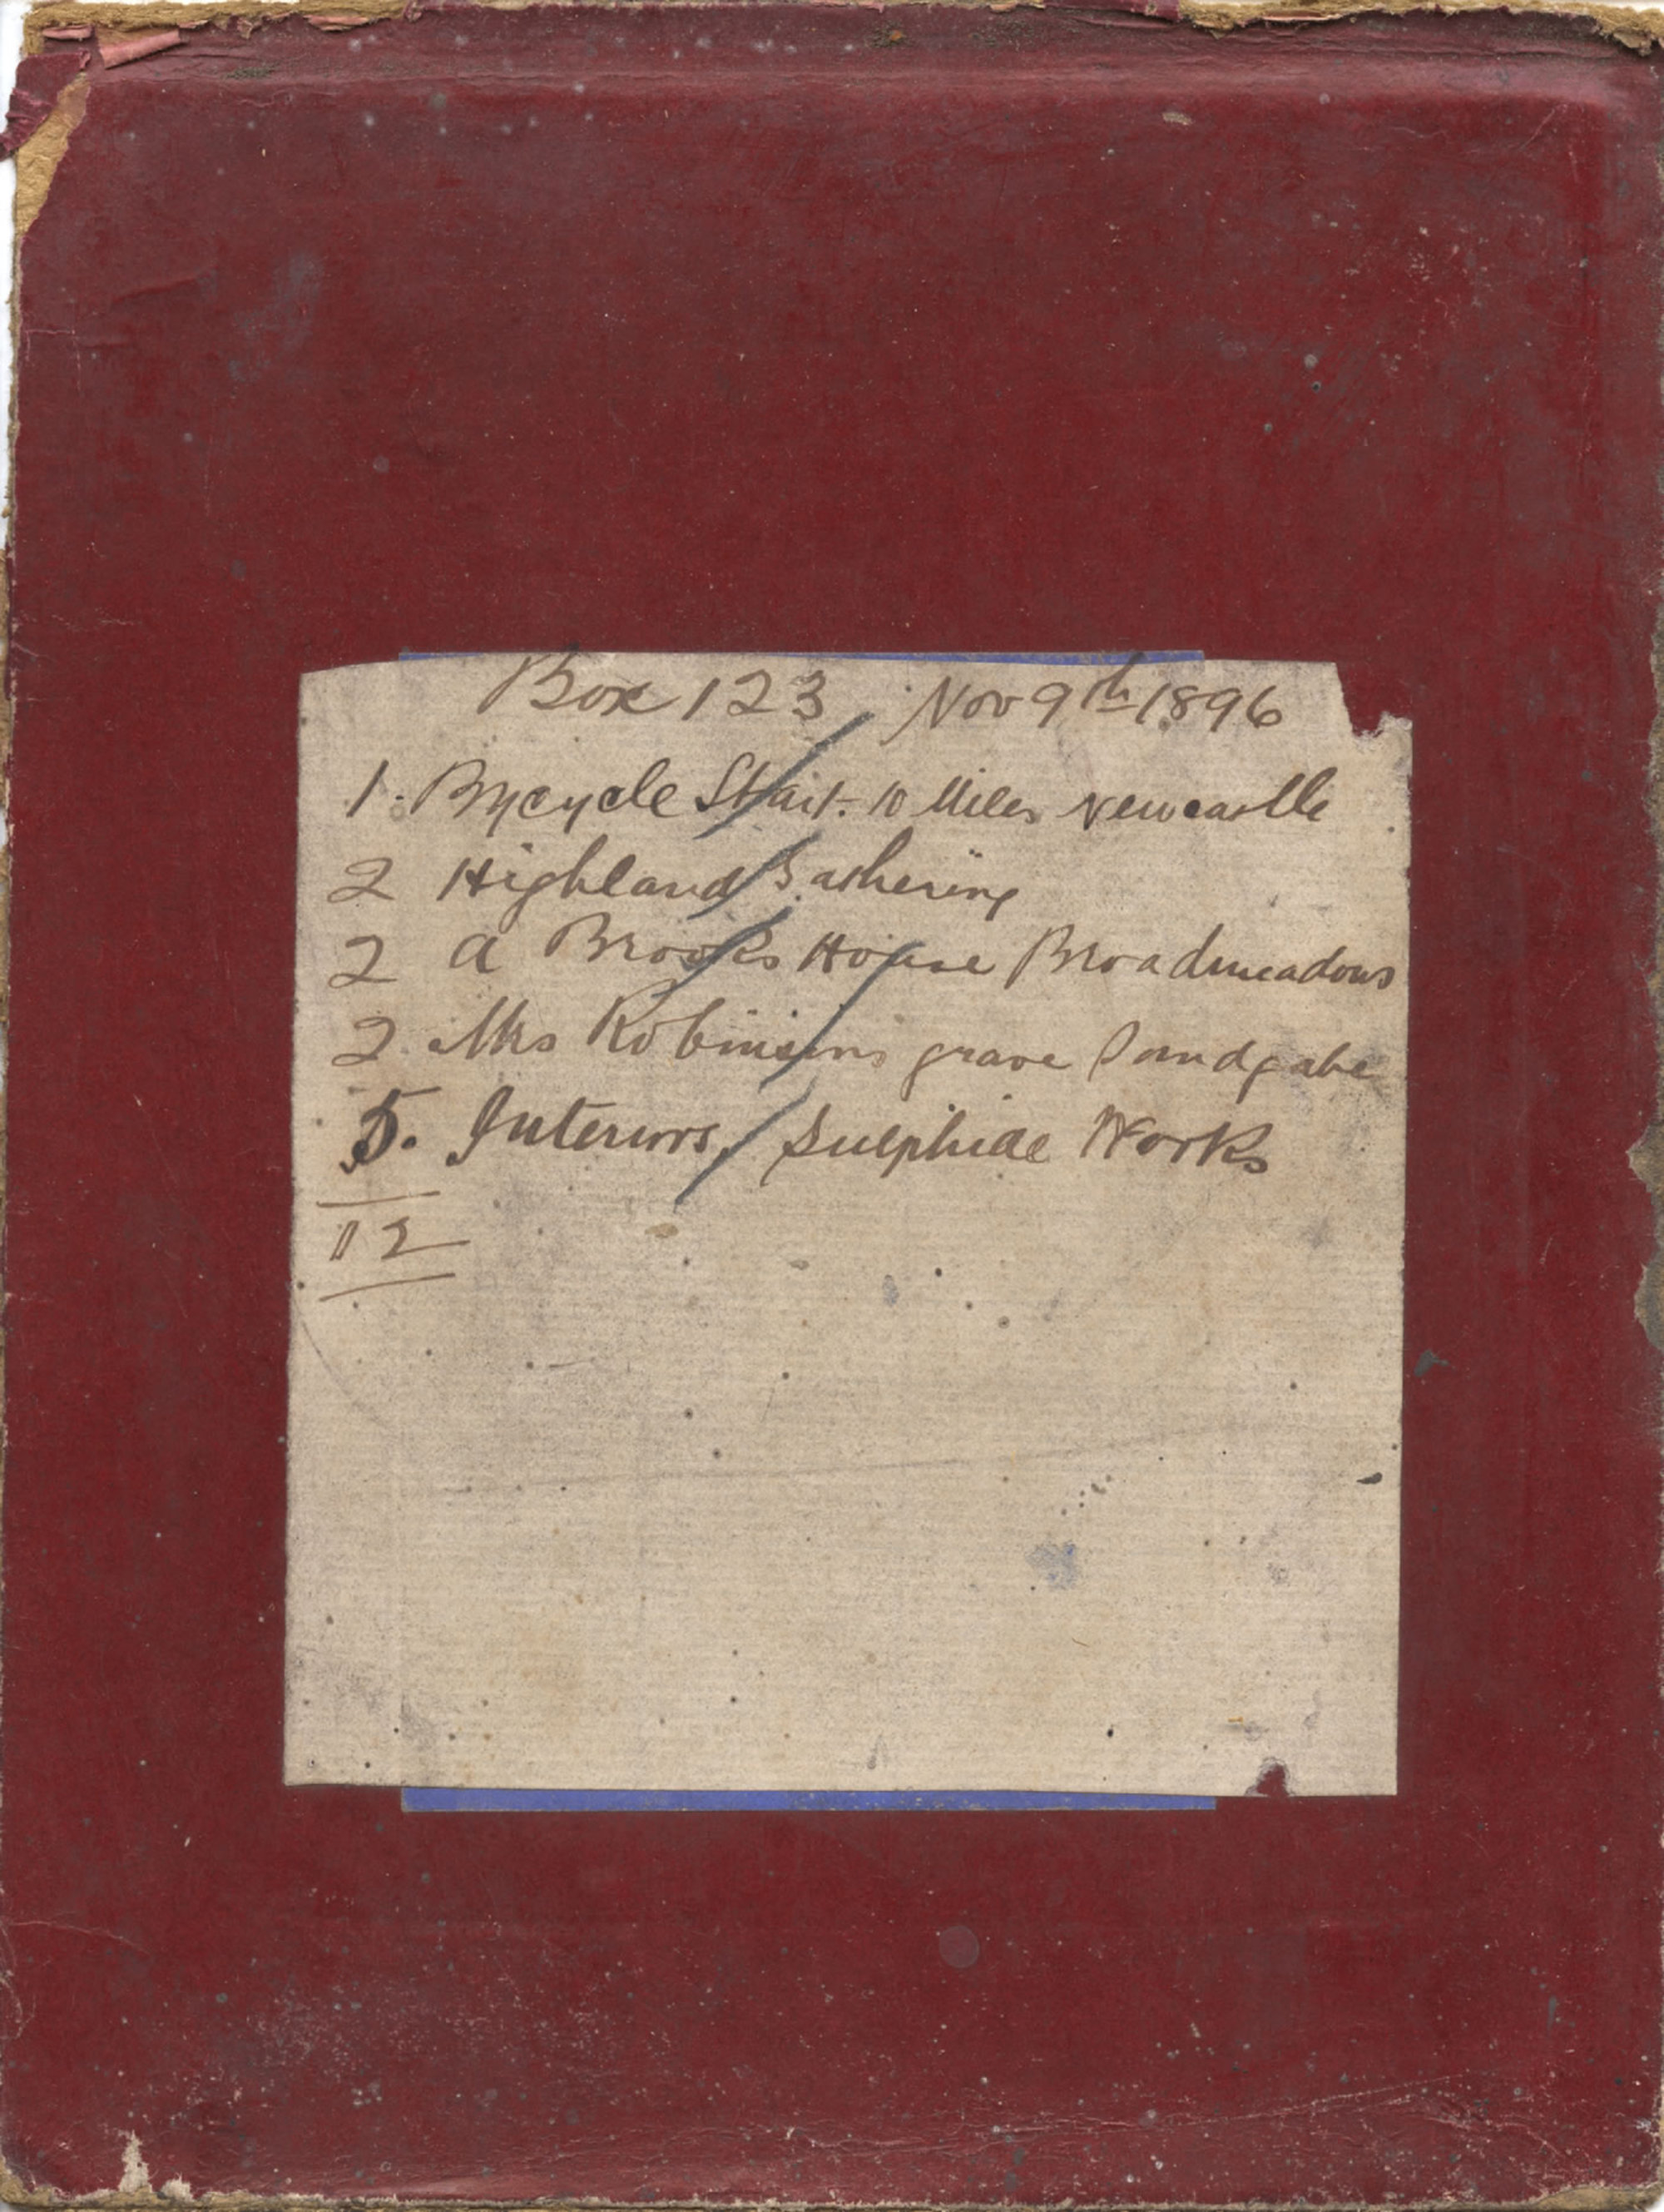 Box 123 Nov 9th 1896
1. Bycycle Start. 10 Miles Newcastle
2 Highland Gathering
2 A Brooks House Broadmeadows
2. Mrs Robinsons grave Sandgate
5. Interiors, Sulphide Works
12